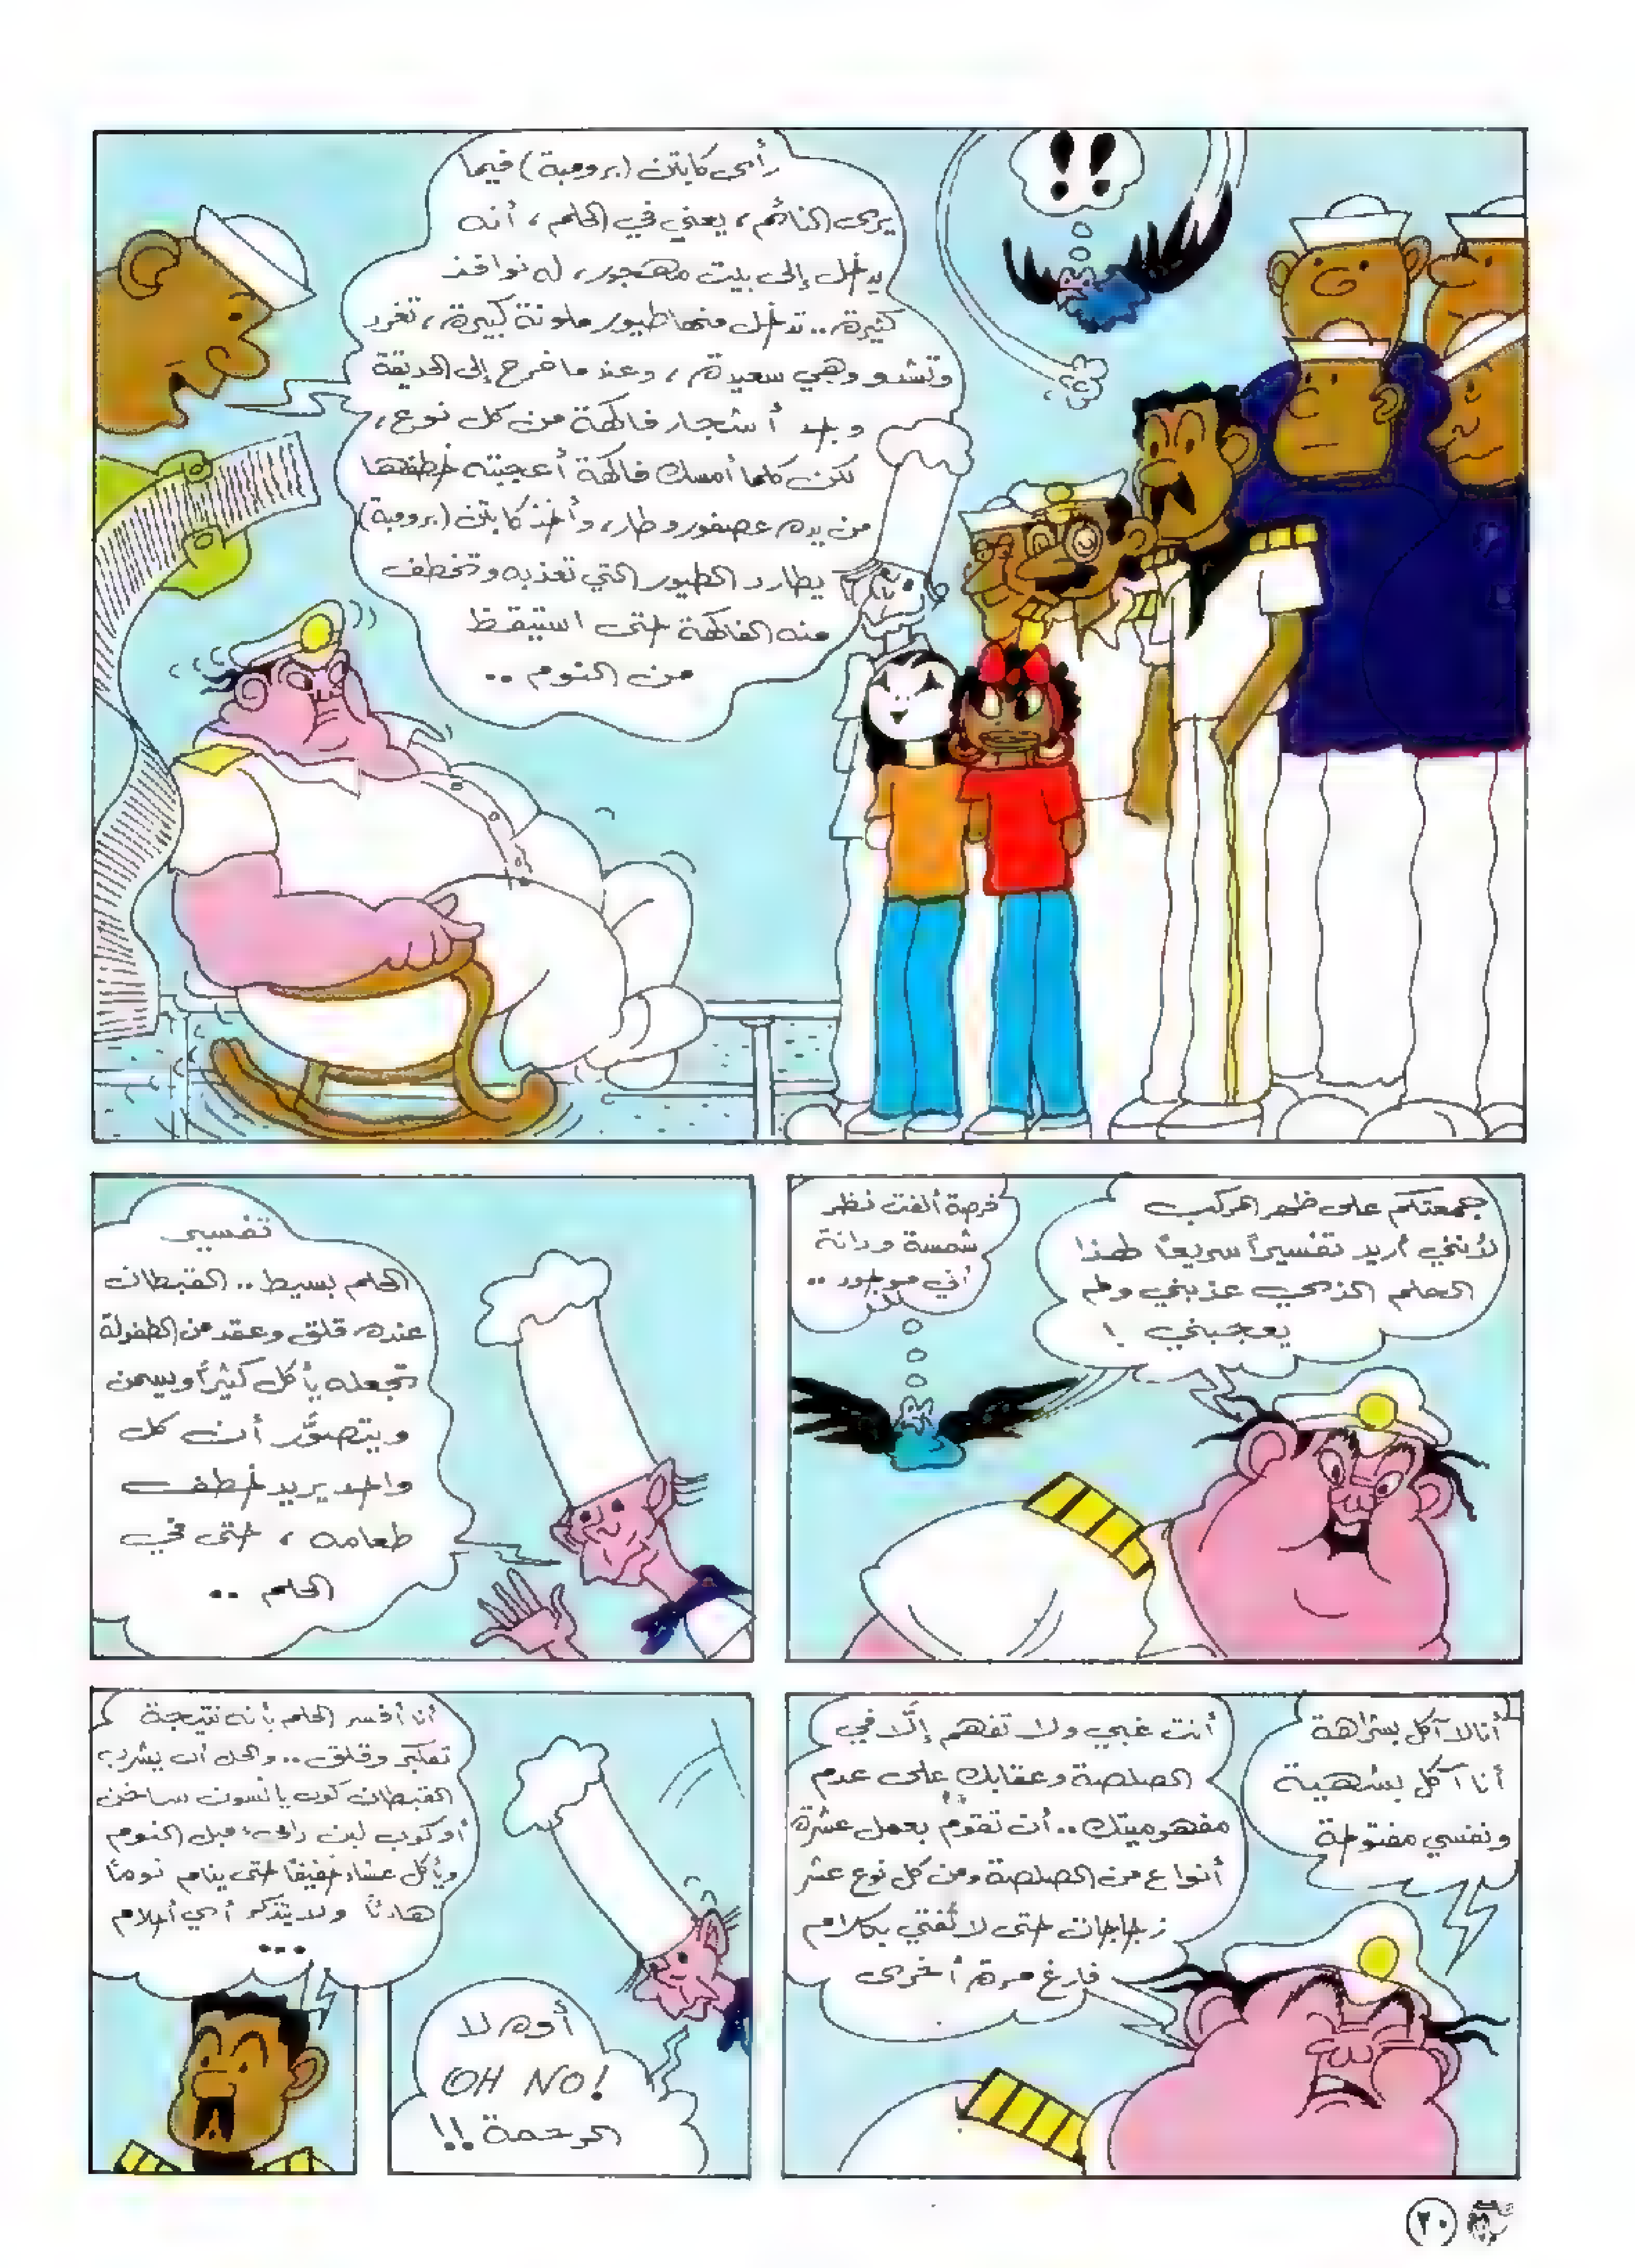 رأى كابتن (برومبة) فيما
يرى النائم، يعني في الحلم، أنه
يدخل إلى بيت مهجور، له نوافذ
كثيرة.. تدخل منها طيور ملونة كبيرة، تغرد
وتشدو وهي سعيدة، وعندما خرج إلى الحديقة
وجد أشجار فاكهة من كل نوع،
لكن كلما أمسك فاكهة أعجبته خطفها
من يده عصفور وطار، وأخذ كابتن (برومبة)
يطارد الطيور التي تعذبه وتخطف
منه الفاكهة حتى استيقظ
من النوم..
!!
جمعتكم على ظهر المركب
لأنني أريد تفسيراً سريعاً لهذا
الحلم الذي عذبني ولم
يعجبني!
فرصة ألفت نظر
شمسة ودانة
أني موجود..
تفسير
الحلم بسيط.. القبطان
عنده قلق وعقد من الطفولة
تجعله يأكل كثيراً ويسمن
ويتصوَّر أن كل
واحد يريد خطف
طعامه، حتى في
الحلم..
أنا لا آكل بشراهة
أنا آكل بشهية
ونفسي مفتوحة
أنت غبي ولا تفهم إلَّا في
الصلصة وعقابك على عدم
مفهوميتك.. أن تقوم بعمل عشرة
أنواع من الصلصة ومن كل نوع عشر
زجاجات حتى لا تُفتي بكلام
فارغ مرة أخرى
أوه لا
OH NO!
الرحمة!!
أنا أفسر الحلم بأنه نتيجة
تفكير وقلق.. والحل أن يشرب
القبطان كوب يانسون ساخن
أو كوب لبن دافئ قبل النوم
ويأكل عشاء خفيفاً حتى ينام نوماً
هادئاً ولا يتذكر أي أحلام
...
٢٠